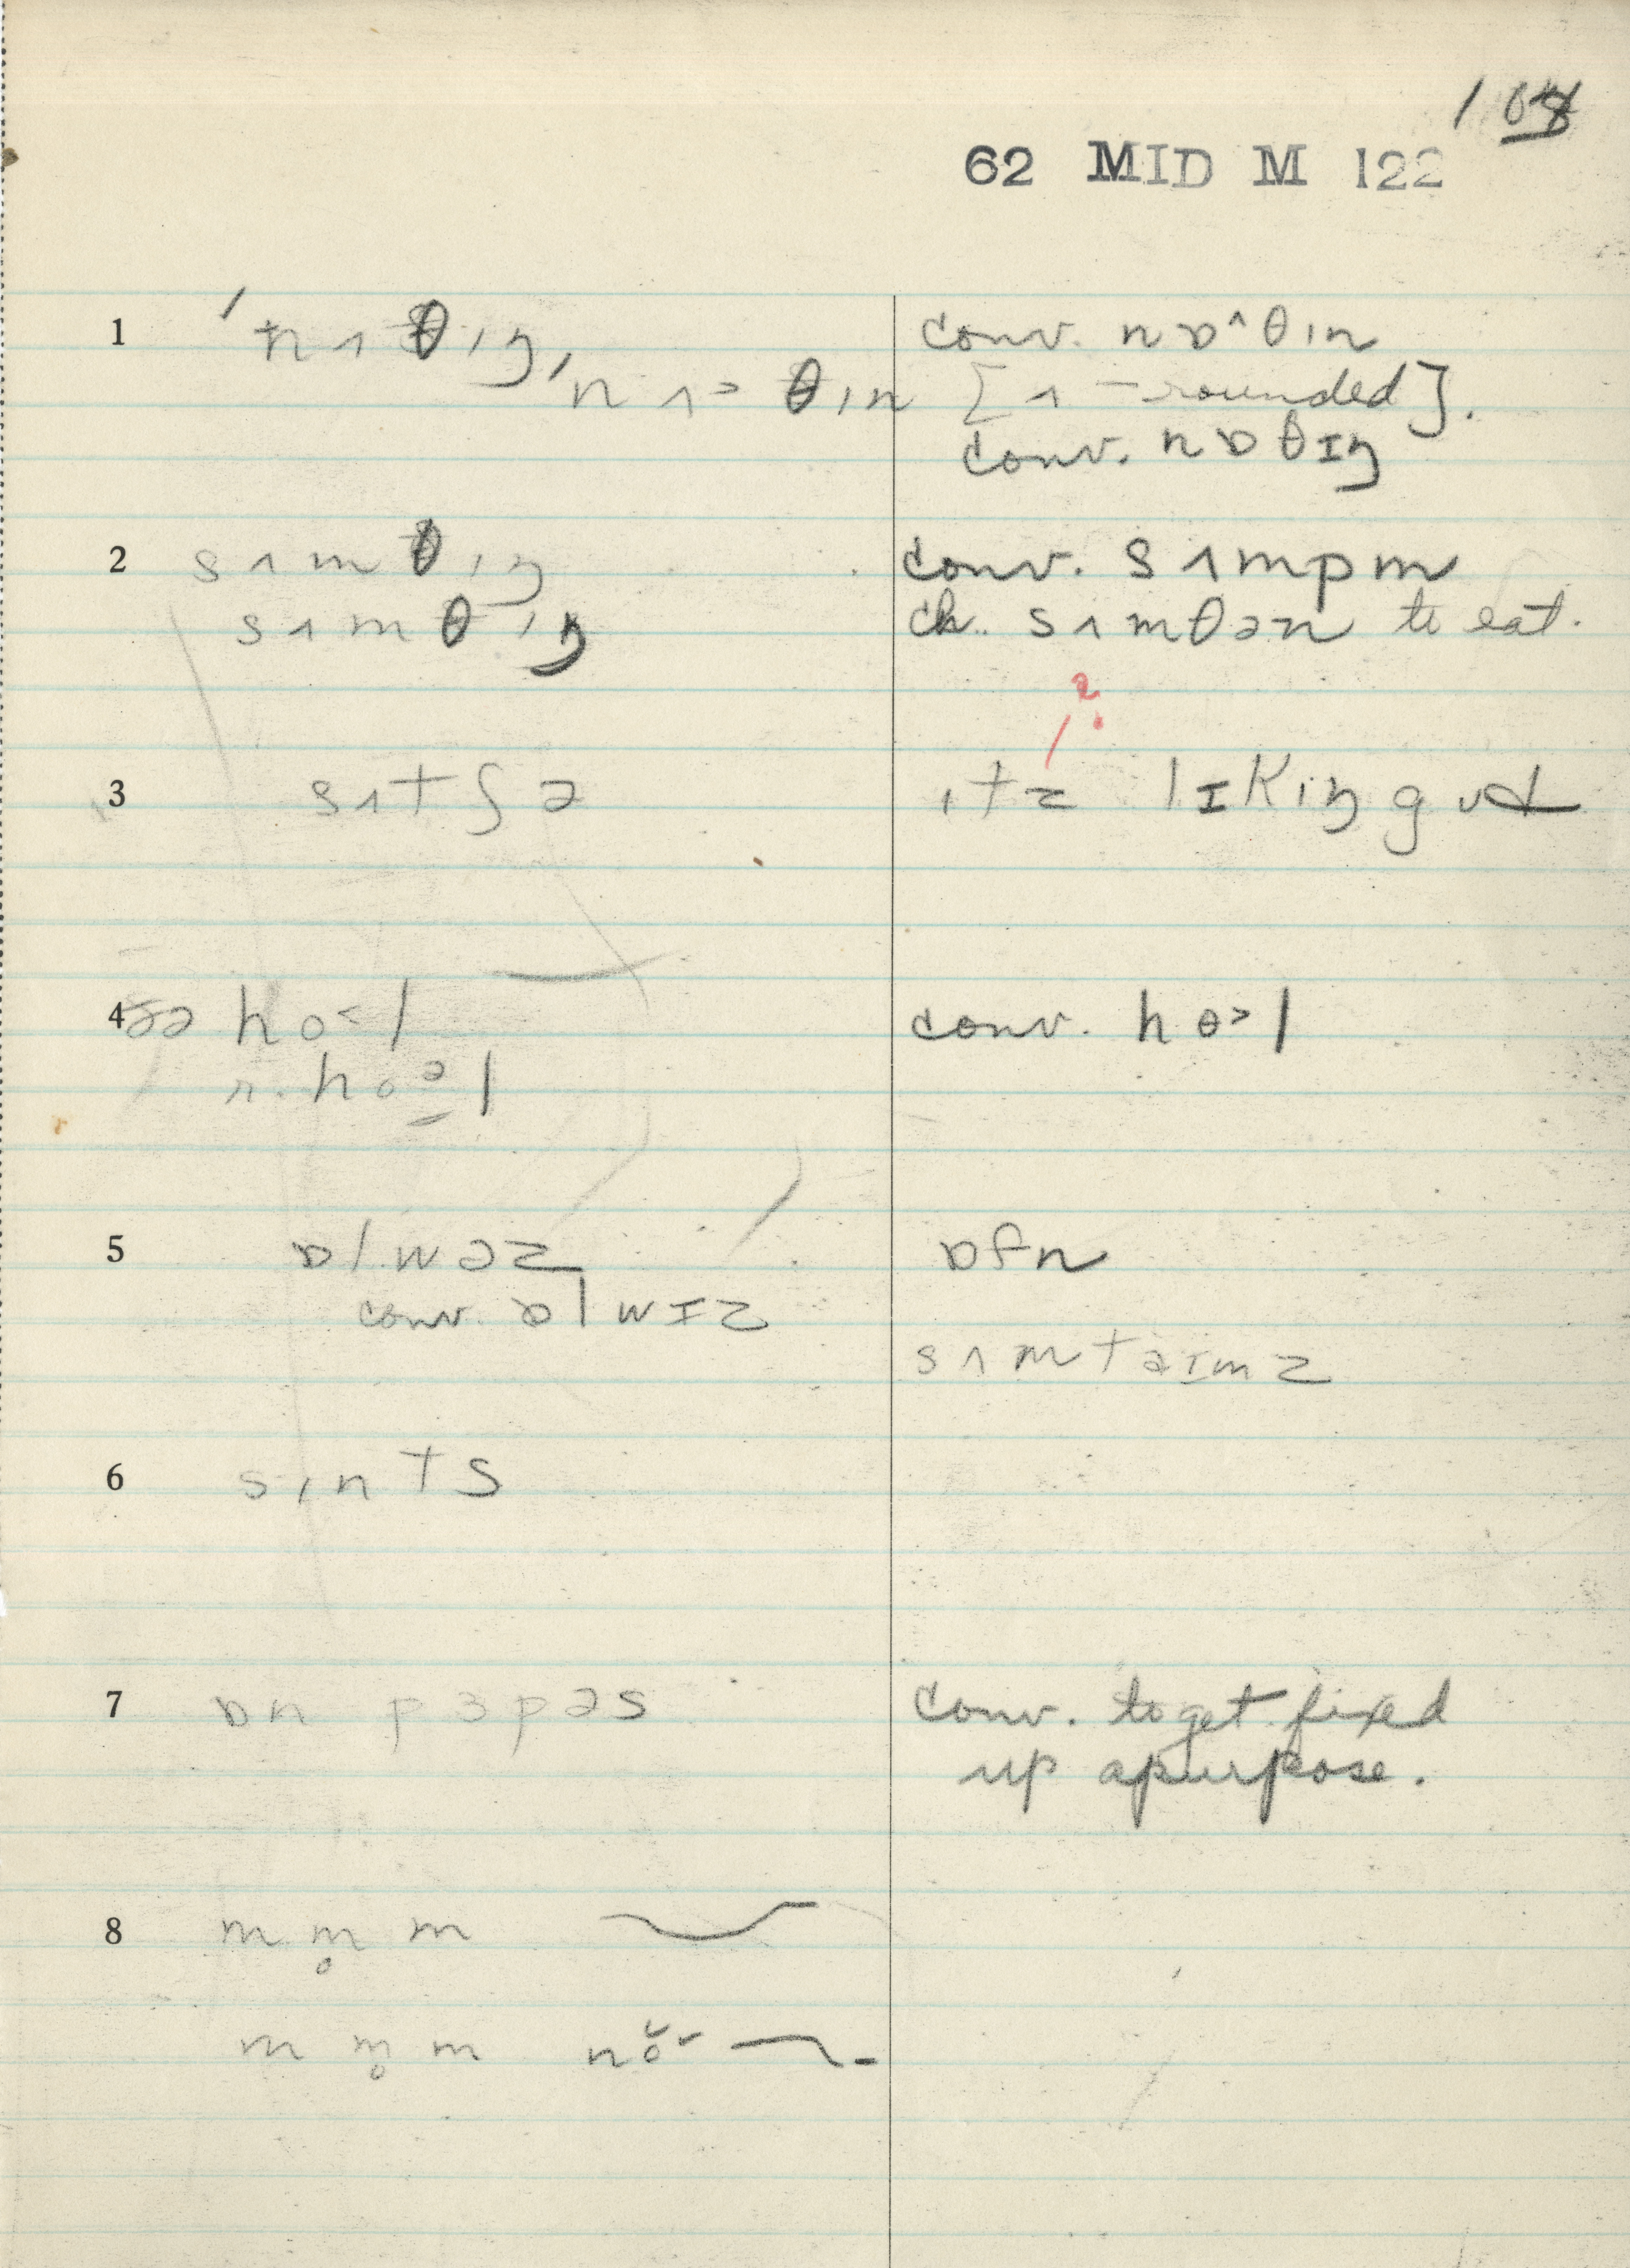 104
62 MID M 122
1 ˈnʌθɪŋ, ˈnʌ˃θɪn
conv. nɒ^θɪn
[ʌ – rounded].
conv. nɒθɪŋ
2 sʌmθɪŋ
sʌmθɪŋ
conv. sʌmpm
ch. sʌmθən to eat.
?
3 sʌtʃ ə
ɪtz lɪkɪŋ gʊd
4 ho˂l
r. hoəl
conv. hɵ˃l
5 ɒlwəz
conv. ɒlwɪz
ɒfn
sʌmtaɪmz
6 sɪnts
7 ɒn pɜpəs
conv. to get fixed
up apurpose.
8 m m̥ m
m m̥ m